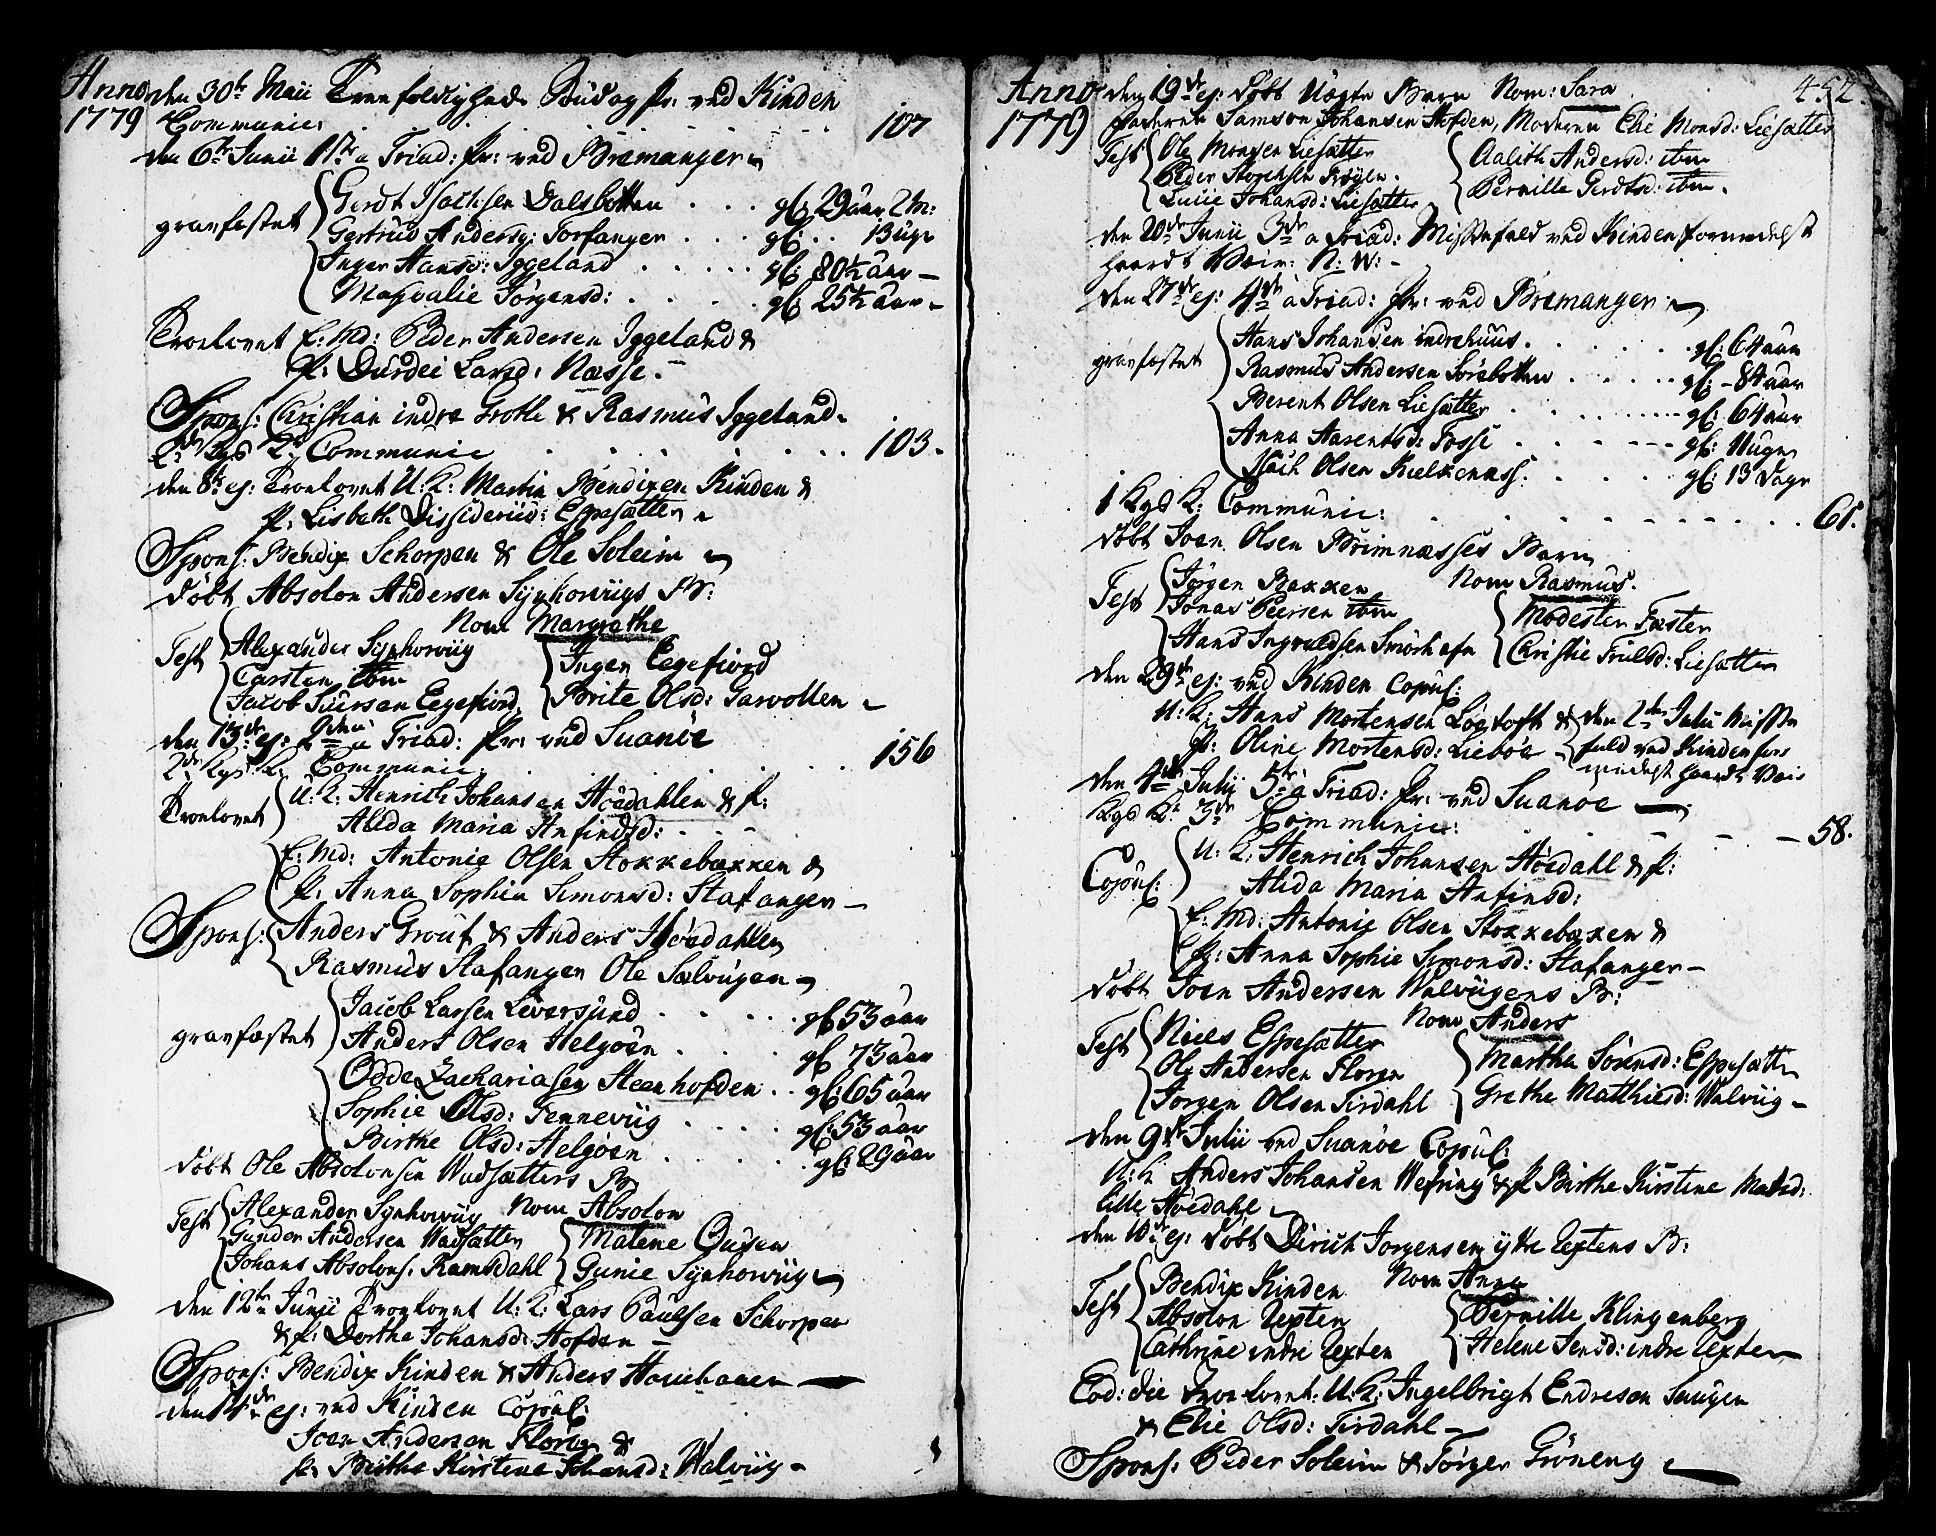 Anno den 30te Maii Trenfoldigheds Sŭdag Pr: ved Kinden
1779 Communic: . . . 107
den 6te Junii 1ste a Triad: Pr: ved Bremanger
gravfæstet Gerdt Isachsen Dalsbotten . . . gl: 29 aar 2 M:
Gertrud Andersd: Torfanger . . . gl: . . 13 ŭgr
Inger Hansd: Iggeland . . . . . gl: 80½ aar –
Magdalie Jørgensd: . . . . . gl: 25½ aar –
Troelovet E: Md: Peder Andersen Iggeland &
P: Durdei Larsd: Næsse.
Spons: Christian indre Grotle & Rasmus Iggeland
2de Kgs K: Communic . . . 103.
den 8de ej: Troelovet U: K: Martin Bendixen Kinden &
P: Lisbeth Dissideriid: Espesætter
Spons: Bendix Schorpen & Ole Soleim
døbt Absolon Andersen Synhorviigs B:
Nom Margrethe
Test Alexander Synhorviig
Carsten ibm
Jacob Siursen Eegefiord.
Inger Eegefiord
Brite Olsd: Sarvollen
den 13de ej: 2den a Triad: Pr: ved Suanøe
2de Kgs K: Communic: . . . 156
Troelovet U: K: Henrich Johansen Høedahlen & P:
Alida Maria Anfindsd: . . . .
E: Md: Antonie Olsen Stokkebækken &
P: Anna Sophia Simonsd: Stafanger –
Spons: Anders Grouf & Anders Høedahlen
Rasmus Stafanger Ole Sælvugen
gravfæstet Jacob Larsen Leversund . . . . gl 53 aar
Anders Olsen Helgøen . . . . gl 73 aar
Odde Zachariasen Steenhofden . . gl: 65 aar
Sophie Olsd: Tenneviig . . . . gl: 53 aar
Birthe Olsd: Helgøen . . . . . gl: 29 aar
døbt Ole Absolonsen Wadsætters B:
Nom Absolon
Test Alexander Synhorviig
Gunder Andersen Wadsætter
Johans Absolons: Ramsdahl
Malene Ousen
Gunie Synhorviig
den 12te Junii Troelovet U: K: Lars Paulsen Schorpen
& P: Dorthe Johansd: Hofden –
Spons: Bendix Kinden & Anders Hauehauen
den 14de ej: ved Kinden Copul:
Joen Andersen Florøe &
P: Birthe Kirstene Johansd: Walviig –
452.
Anno den 19de ej: døbt Uægte Barn Nom: Sara
1779 Faderen Samson Johansen Hofden, Moderen Elie Monsd: Liesætter
Test Ole Monsen Liesætter
Peder Frøyen.
Lucie Johansd: Liesætter
Aalith Andersd: ibm
Pernille Gerdtsd: ibm.
den 20de Junii 3de a Triad: Missefald ved Kinden formedelst
haardt Veir: N: W: –
den 27de ej: 4de a Triad: Pr: ved Bremanger
gravfæstet Hans Johansen indrehuus . . . . gl: 64 aar
Rasmus Andersen Sørebotten . . . . gl: – 84 aar
Berent Olsen Liesætter . . . . gl: 64 aar
Anna Aarentsd: Fosse . . . . gl: 11 ugr
Isach Olsen Kielkenæss: . . . . gl: 13 Dage
1 Kgs K: Communic: . . . 61.
døbt Joen Olsen Brimnæsses Barn
Nom Rasmus.
Test Jørgen Bakken
Jonas Peersen ibm
Hans Ingvaldsen Smørhafn
Modesten Fæster
Christie Trulsd: Liesætter
den 29de ej: ved Kinden Copul:
U: K: Hans Mortensen Løgtoft &
P: Oline Mortensd: Liebøe
den 2den Julii Misse
fald ved Kinden for
medelst haardt Veir
den 4de Julij 5te a Triad: Pr: ved Suanøe –
Kgs K: 3de Communic: . . . 58.
Copul: U: K: Henrich Johansen Høedahl & P:
Alida Maria Anfinsd:
E: Md: Antonie Olsen Stokkebækken &
P: Anna Sophie Simonsd: Stafanger –
døbt Joen Andersen Walvugens B:
Nom Anders
Test Niels Espesætter
Ole Andersen Florøe
Jørgen Olsen Tirdahl
Marthe Sørensd: Espesætter
Grethe Matthiesd: Walviig –
den 9de Julii ved Suanøe Copul:
U: K Anders Johansen Wefring & P Birthe Kirstine Madsd:
lille Høedahl
den 10de ej: døbt Dirich Jørgensen ytre Uxtens B:
Nom Anna
Test Bendix Kinden
Absolon Uxten
Cathrine indre Uxten
Pernille Klingenberg
Helene Jensd: indre Uxten
Eod: die Troelovet: U: K: Ingelbrigt Endresen Saugen
& Elie Olsd: Tirdahl –
Spons: Peder Soleim & Jørgen Grøneng